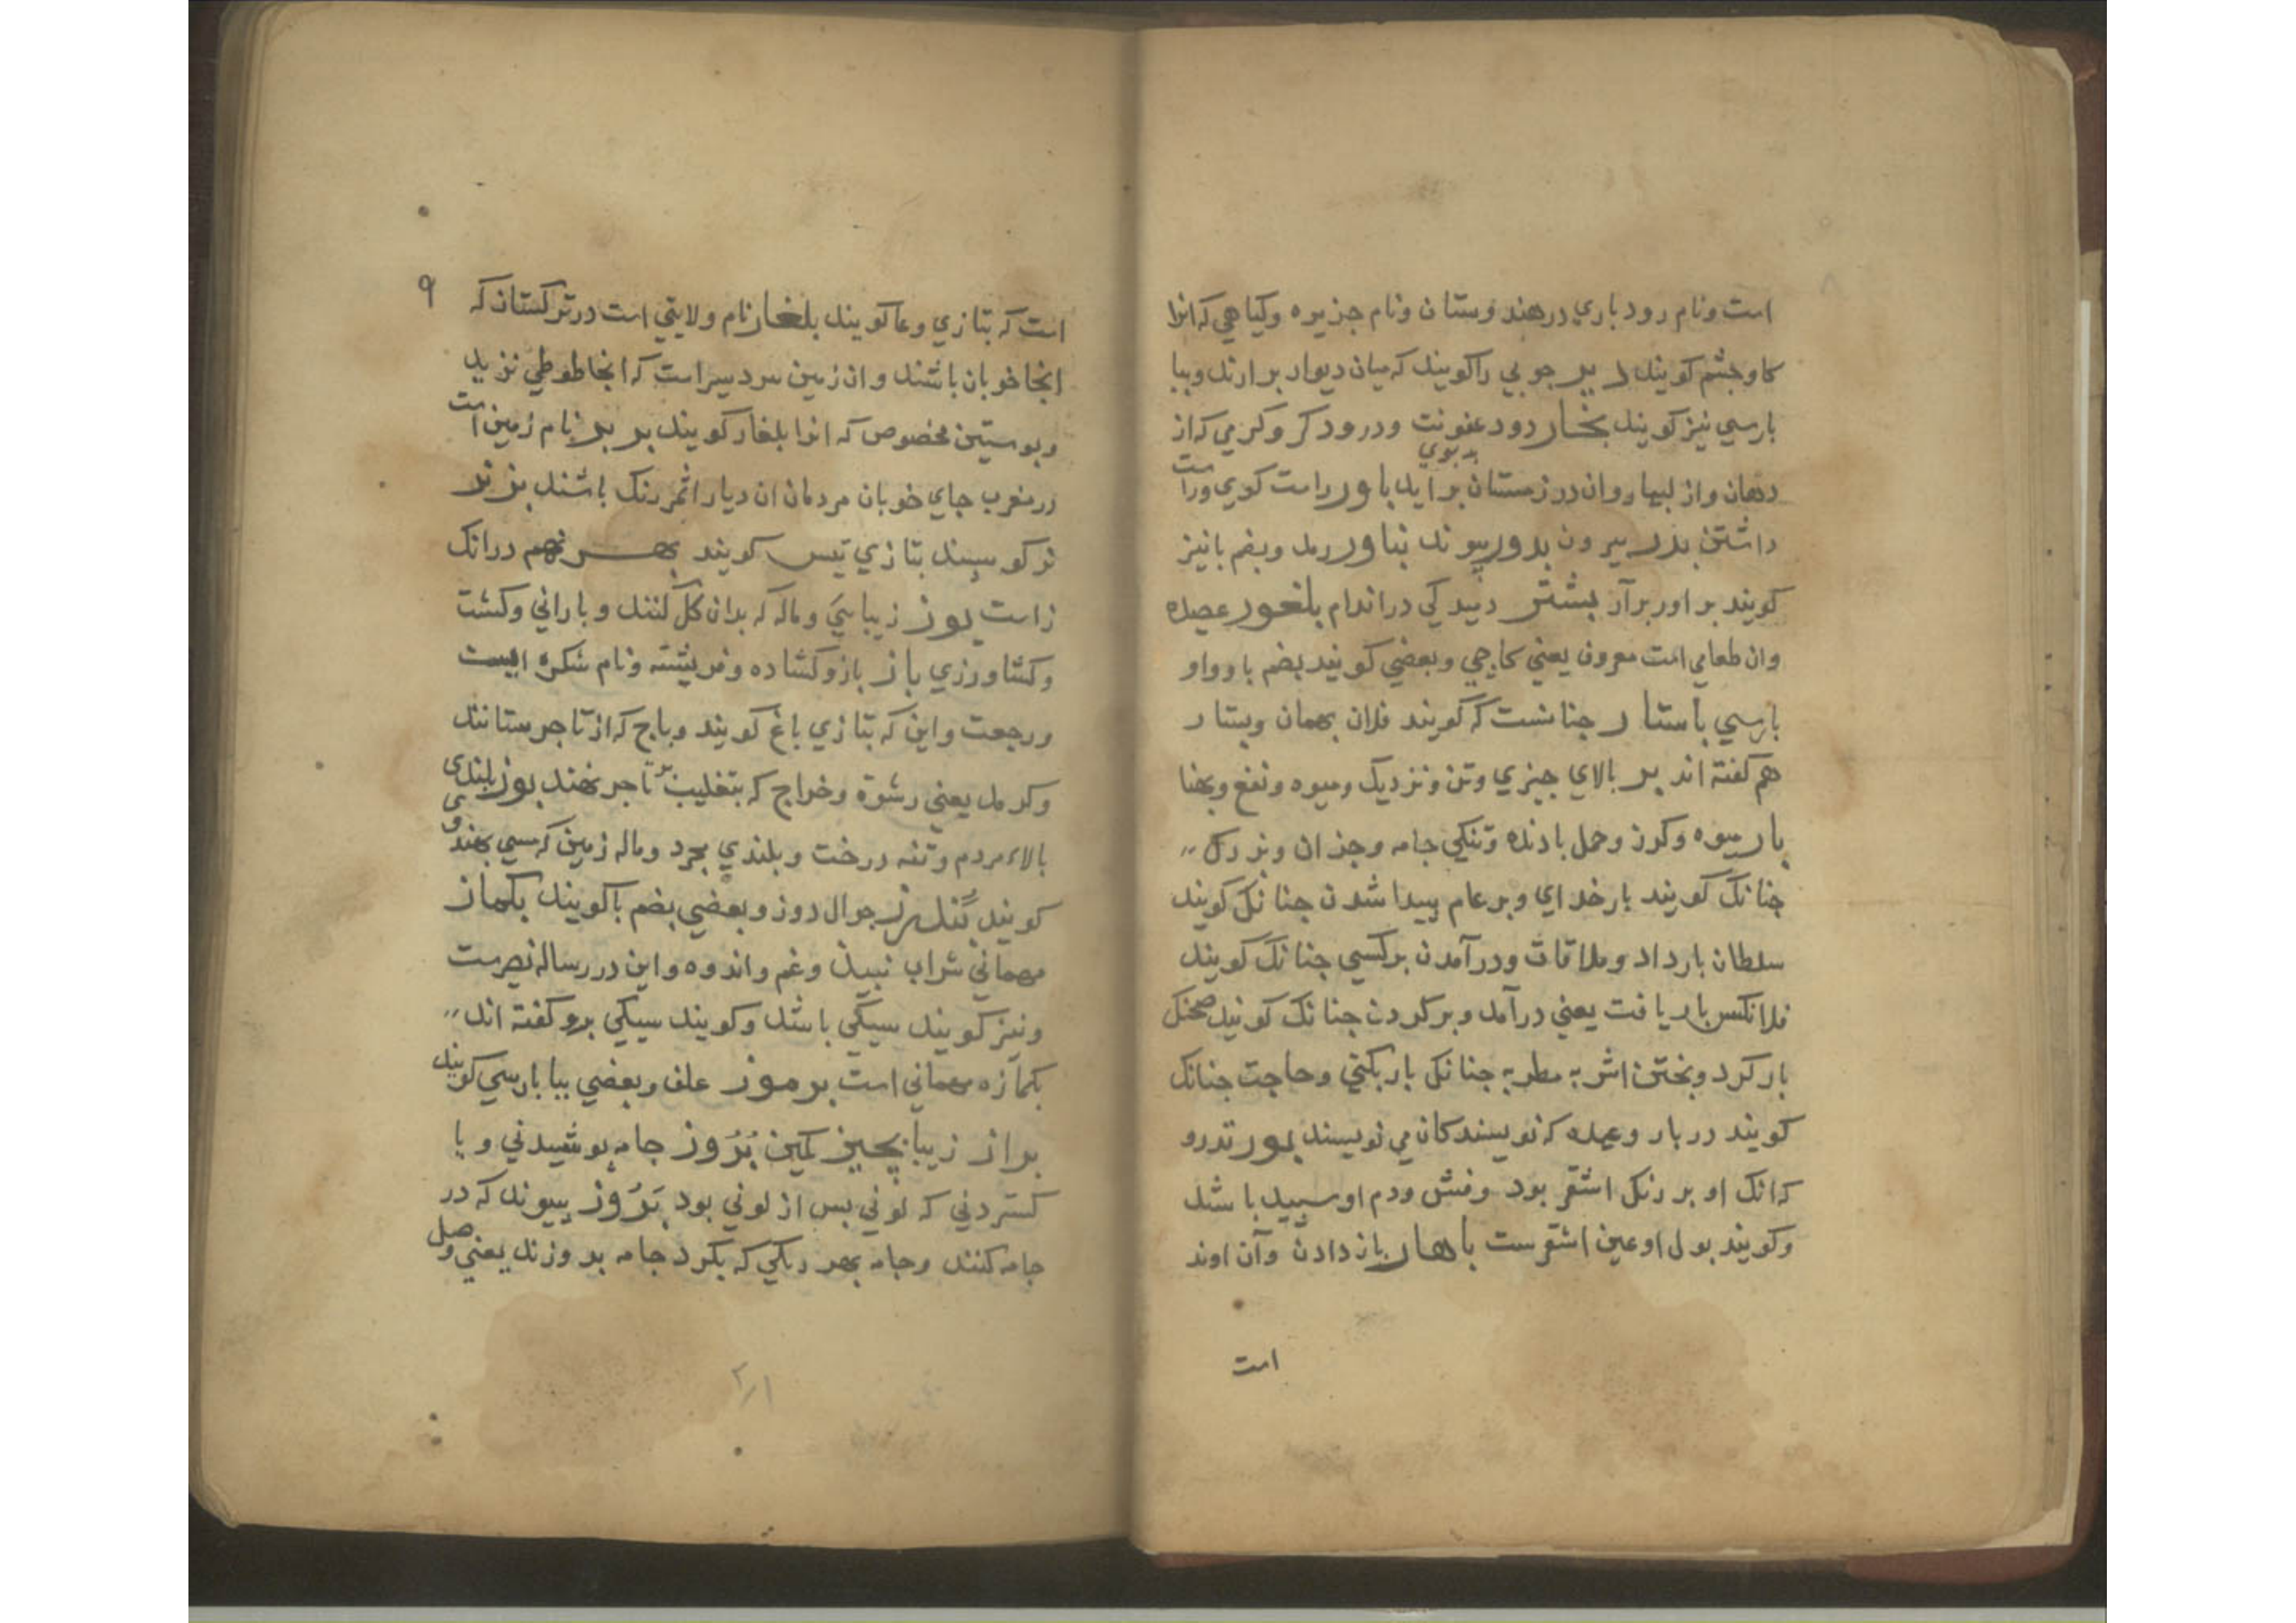 است ونام رود باري در هند وستان ونام جزيره وكياهي كه انرا
كاوجشم كويند بر جوبي را كويند كه ميان ديوار برارند وببا
بارسي نيز كويند بخار دود عفونت ودرود كر وكرمي كه از
بدبوي
دهان واز لبها روان در زمستان برايد باور راست كوي وراست
داشتن بدر بيرون بدور بيوند بناور دمل وبضم با نيز
كويند بر اور برآر بشتر دميدكي در اندام بلغور عصيده
وان طعامي است معروف يعني كاجي وبعضي كويند بضم با وواو
بارسي باستار جنانست كه كويند فلان بهمان وبستار
هم كفته اند بر بالاي جيزي وتن ونزديك وميوه ونفع وبهنا
بار ميوه وكرز وحمل بارنده وتنكي جامه وجز ان وبزرك
جنانك كويند بار خداي وبر عام بيدا شدن جنانك كويند
سلطان بار داد وملاقات ودرآمدن بركسي جنانك كويند
فلانكس بار يافت يعني درآمد وبركردن جنانك كويند
بار كرد وبختن اشربه مطربه جنانك بار بكني وحاجت جنانك
كويند دربار وعمله كه نويسندكان مي نويسند بور تدرو
كه انك او بر رنك اشقر بود وفش ودم او سبيد باشد
وكويند بول او عين اشقرست باهار باز دادن وآن اوند
است
٩
است كه بتازي وعا كويند بلغار نام ولايتي است در تركستان كه
انجا خوبان باشند وان زمين سردسير است كه انجا طوطي نزيد
وبوستين مخصوص كه انرا بلغار كويند بربر نام زمين است
در مغرب جاي خوبان مردمان ان ديار اثمر رنك باشند بز نر
نر كوسبند بتازي تيس كويند درانك
زاست بوز زيباسي وماله كه بدان كل كنند وباراني وكشت
وكشاورزي باز باز وكشاده وفريشته ونام شكره ايست
ورجعت واين كه بتازي باغ كويند وباج كه از تاجر ستانند
وكرمل يعني رشوة وخراج كه بتغليب بر تاجر نهند بوز بلندي
بالاء مردم وتنه درخت وبلندي مجرد وماله زمين كه بهند وي
كويند جوال دوز وبعضي بضم با كويند بكماز
مهماني شراب نبيذ وغم واندوه واين در رساله نصرست
ونيز كويند سيكي باشد وكويند سيكي برو كفته اند
بكمازه مهماني است برموز علف وبعضي ببا بارسي كويند
براز زيبا بجيز كمين بُرُوز جامه بوشيدني ويا
كستردني كه لوني بس از لوني بود بَرُوز بيوند كه در
جامه كنند وجامه بهر رنكي كه بكرد جامه بروزند يعني وصل
٢/١